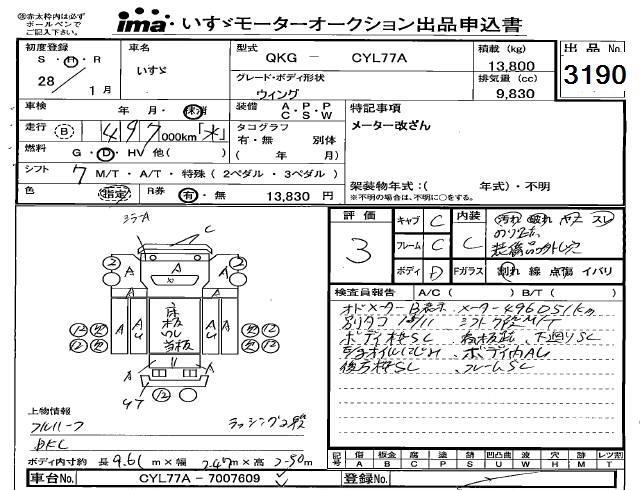 ㊟赤太枠内は必ず
ボールペンで
ご記入下さい。
ima いすゞモーターオークション出品申込書
初度登録 S・H・R 28/1月
車名 いすゞ
型式 QKG － CYL77A
グレード・ボディ形状 ウィング
積載 (kg) 13,800
排気量 (cc) 9,830
出品No. 3190
車検 年 月・抹消
装備 A．P．P C．S．W
特記事項
メーター改ざん
走行 B 497,000km「*」
タコグラフ 有・無 別体 ( 年 月)
燃料 G・D・HV 他( )
シフト 7 M/T・A/T・特殊（2ペダル・3ペダル）
架装物年式：( 年式)・不明
※不明の場合は、不明に○をする。
色 指定 R券 有・無 13,830 円
評価 3
キャブ C 内装 C
フレーム C
ボディ D Fガラス 割れ 線 点傷 イバリ
汚れ 破れ ヤケ スレ
装備品外し穴
検査員報告 A/C ( ) B/T ( )
オドメーターB表示、メーター496051Km
シフト7段M/T
ボディ枠SC 下廻りSC
ボディ内AU
後方枠SC、フレームSC
ミラーA
C
床板ワレ
当板
上物情報
フルハーフ
DKC
ラッシング2段
ボディ内寸約 長 9.61 m×幅 2.41 m×高 2.50 m
記号 傷 A 板金 B 腐 C 塗 P 錆 S 凹凸曲 U 波 W 穴 H 跡 M レツ割 T
車台No. CYL77A - 7007609
登録No.